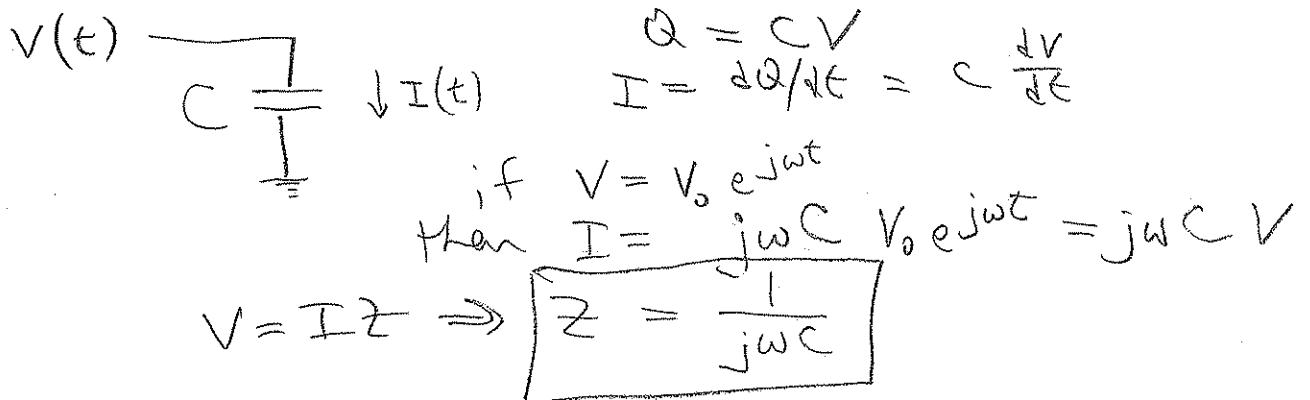 V(t)
C
↓ I(t)
Q = CV
I = dQ/dt = C dV/dt
if V = V₀ e^{jωt}
then I = jωC V₀ e^{jωt} = jωC V
V = IZ ⇒ Z = 1/jωC